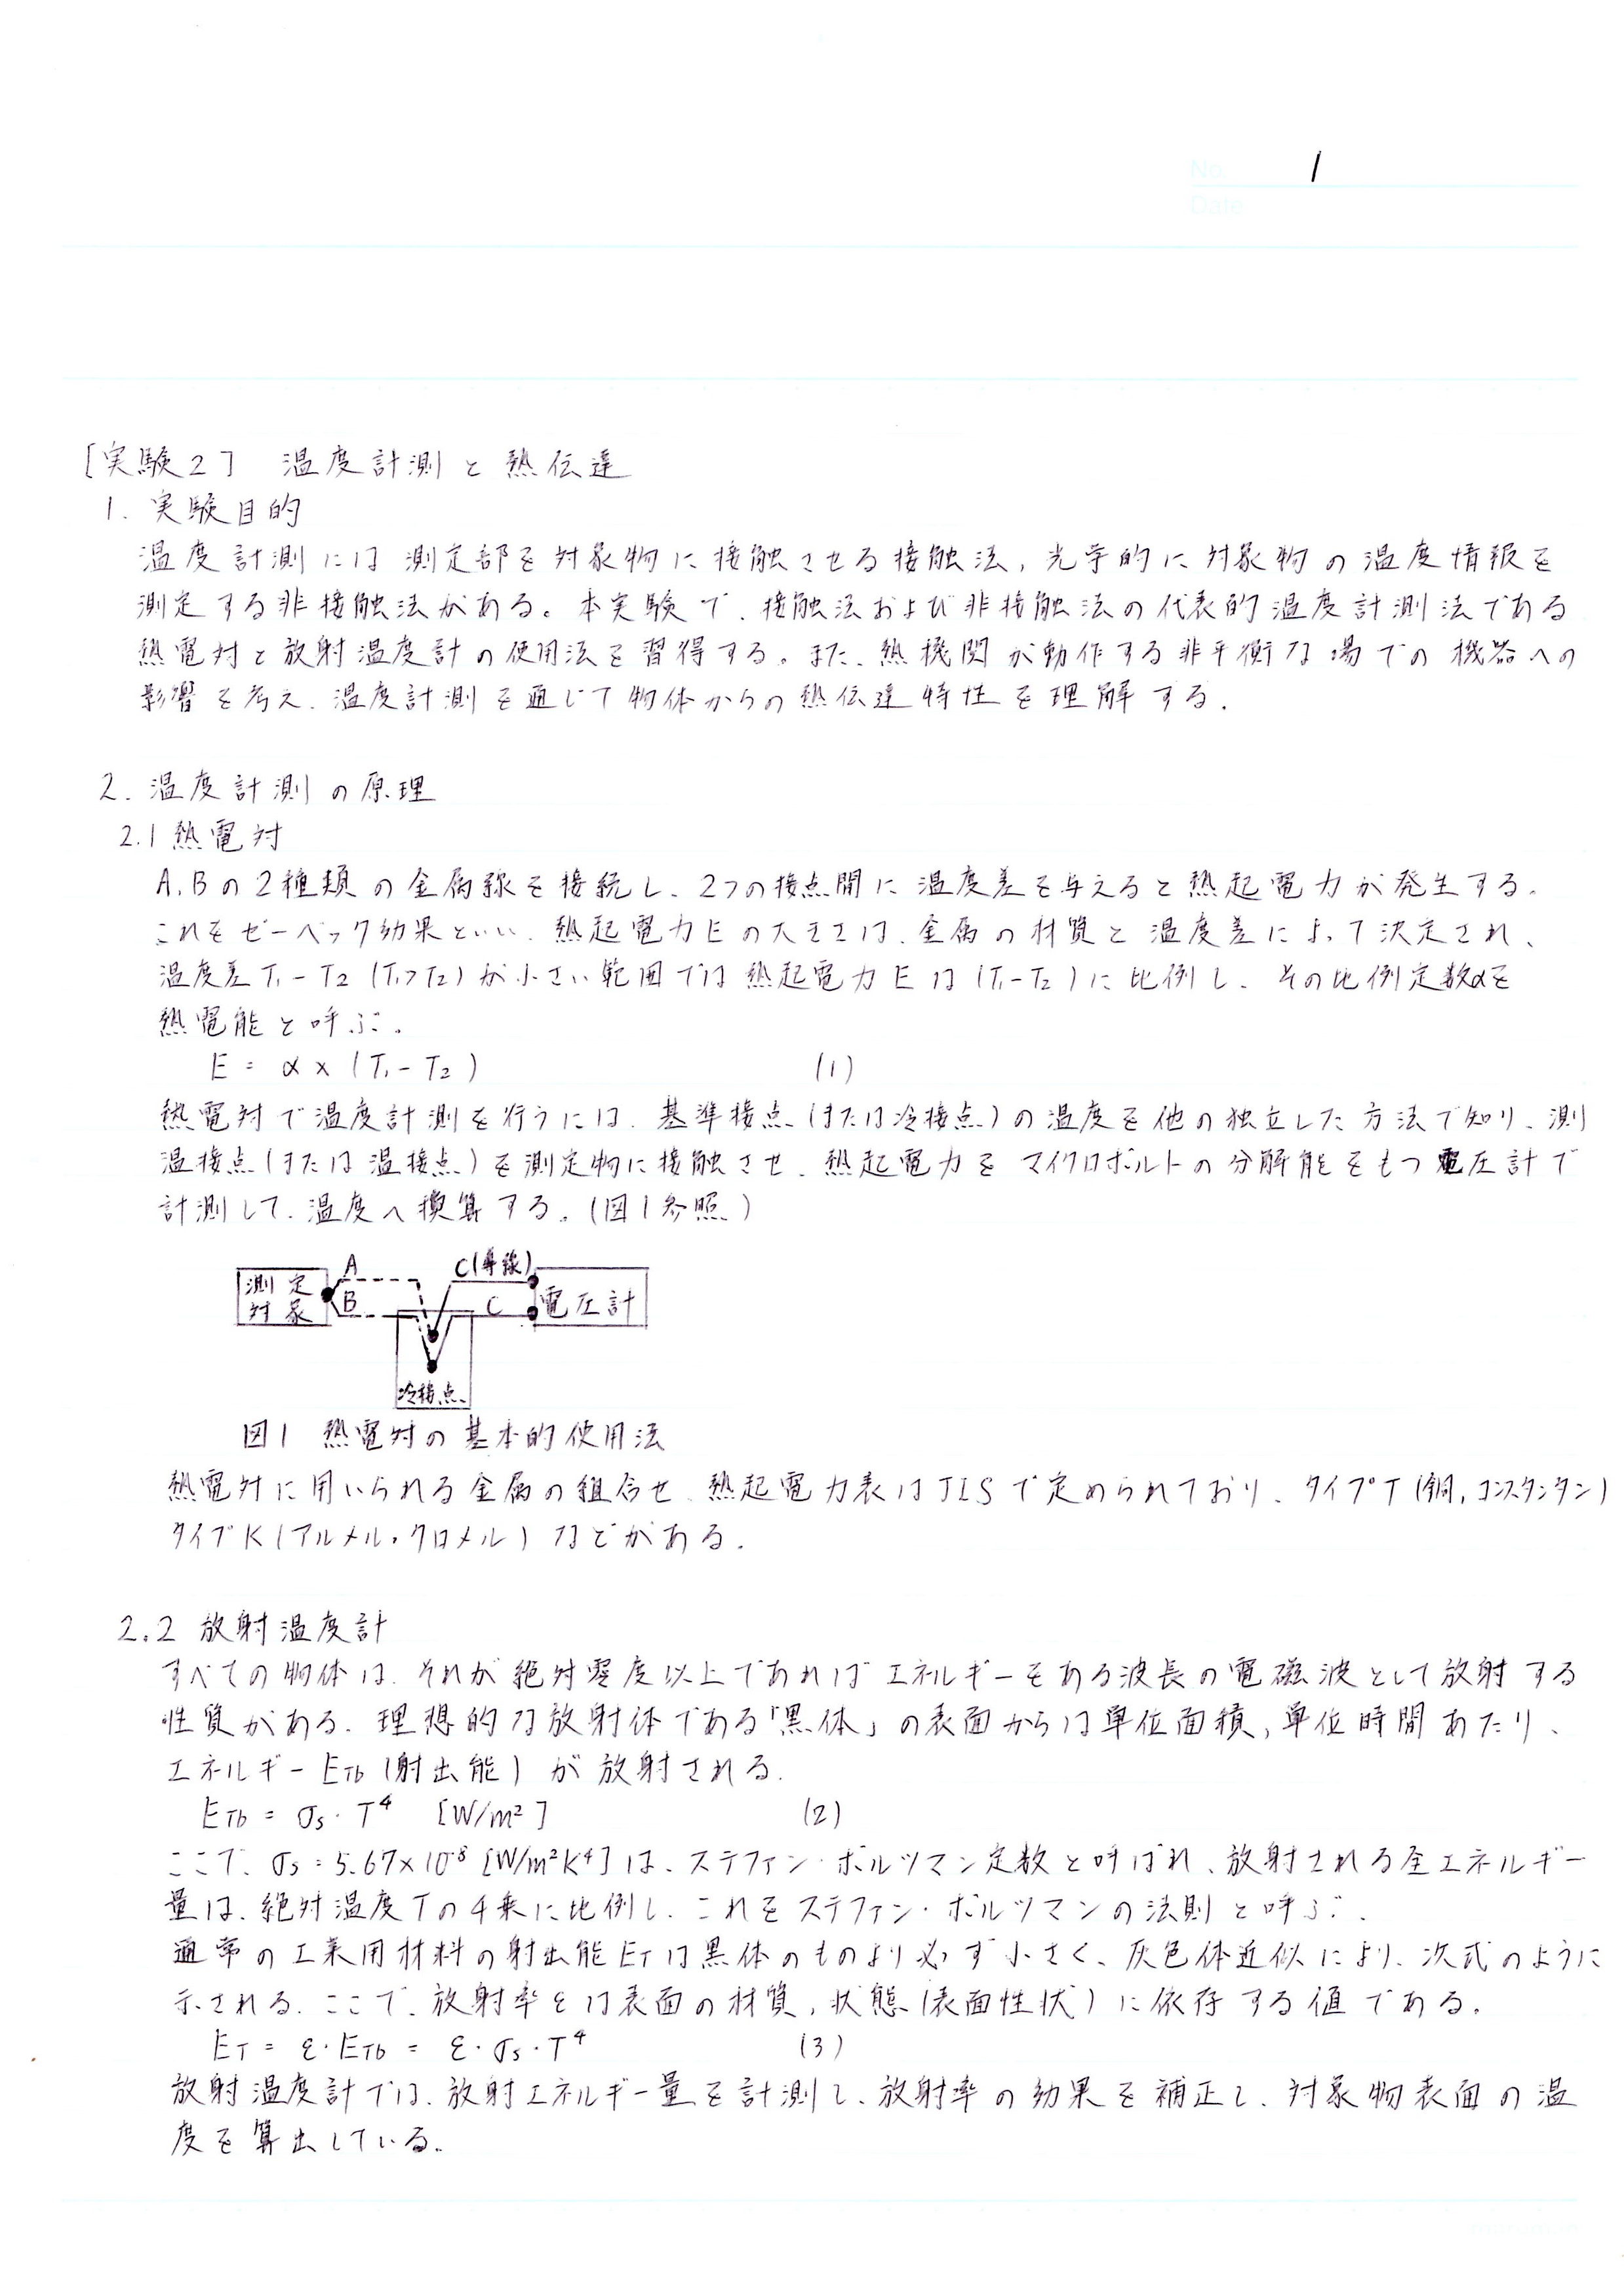 No. 1
Date
[実験2] 温度計測と熱伝達
1. 実験目的
温度計測には測定部を対象物に接触させる接触法,光学的に対象物の温度情報を
測定する非接触法がある。本実験で、接触法および非接触法の代表的温度計測法である
熱電対と放射温度計の使用法を習得する。また、熱機関が動作する非平衡な場での機器への
影響を考え、温度計測を通じて物体からの熱伝達特性を理解する.
2. 温度計測の原理
2.1 熱電対
A,Bの2種類の金属線を接続し、2つの接点間に温度差を与えると熱起電力が発生する。
これをゼーベック効果といい、熱起電力Eの大きさは、金属の材質と温度差によって決定され、
温度差T₁-T₂(T₁>T₂)が小さい範囲では熱起電力Eは(T₁-T₂)に比例し、その比例定数αを
熱電能と呼ぶ。
E = α × (T₁ - T₂) (1)
熱電対で温度計測を行うには、基準接点(または冷接点)の温度を他の独立した方法で知り、測
温接点(または温接点)を測定物に接触させ、熱起電力をマイクロボルトの分解能をもつ電圧計で
計測して、温度へ換算する。(図1参照)
A C(導線)
測定
対象 B C 電圧計
冷接点
図1 熱電対の基本的使用法
熱電対に用いられる金属の組合せ、熱起電力表はJISで定められており、タイプT(銅,コンスタンタン)
タイプK(アルメル,クロメル)などがある.
2.2 放射温度計
すべての物体は、それが絶対零度以上であればエネルギーをある波長の電磁波として放射する
性質がある. 理想的な放射体である「黒体」の表面からは単位面積,単位時間あたり、
エネルギーETb(射出能)が放射される.
ETb = σs・T⁴ [W/m²] (2)
ここで、σs = 5.67×10⁻⁸ [W/m²K⁴]は、ステファン・ボルツマン定数と呼ばれ、放射される全エネルギー
量は、絶対温度Tの4乗に比例し、これをステファン・ボルツマンの法則と呼ぶ.
通常の工業用材料の射出能ETは黒体のものより必ず小さく、灰色体近似により、次式のように
示される. ここで、放射率εは表面の材質,状態(表面性状)に依存する値である.
ET = ε・ETb = ε・σs・T⁴ (3)
放射温度計では、放射エネルギー量を計測し、放射率の効果を補正し、対象物表面の温
度を算出している.